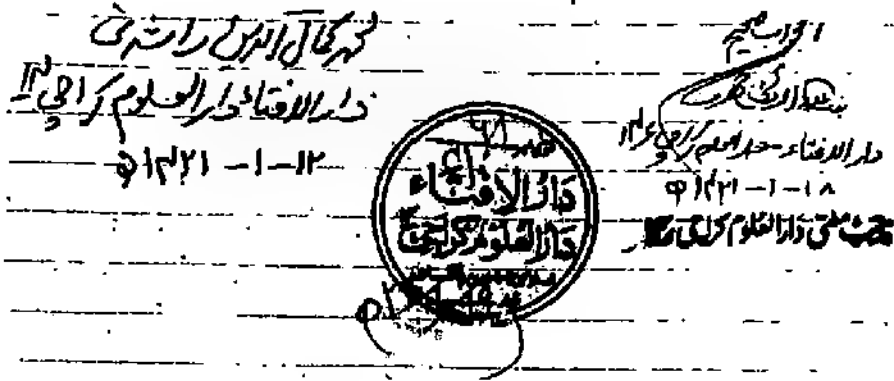 الجواب صحیح
دار الافتاء دارالعلوم کراچی ۱۴
۱۸-۱-۱۴۲۱ھ
نائب مفتی دارالعلوم کراچی
محمد کمال الدین راشدی
دار الافتاء دار العلوم کراچی ۱۴
۱۲-۱-۱۴۲۱ھ
دارالافتاء
دارالعلوم کراچی